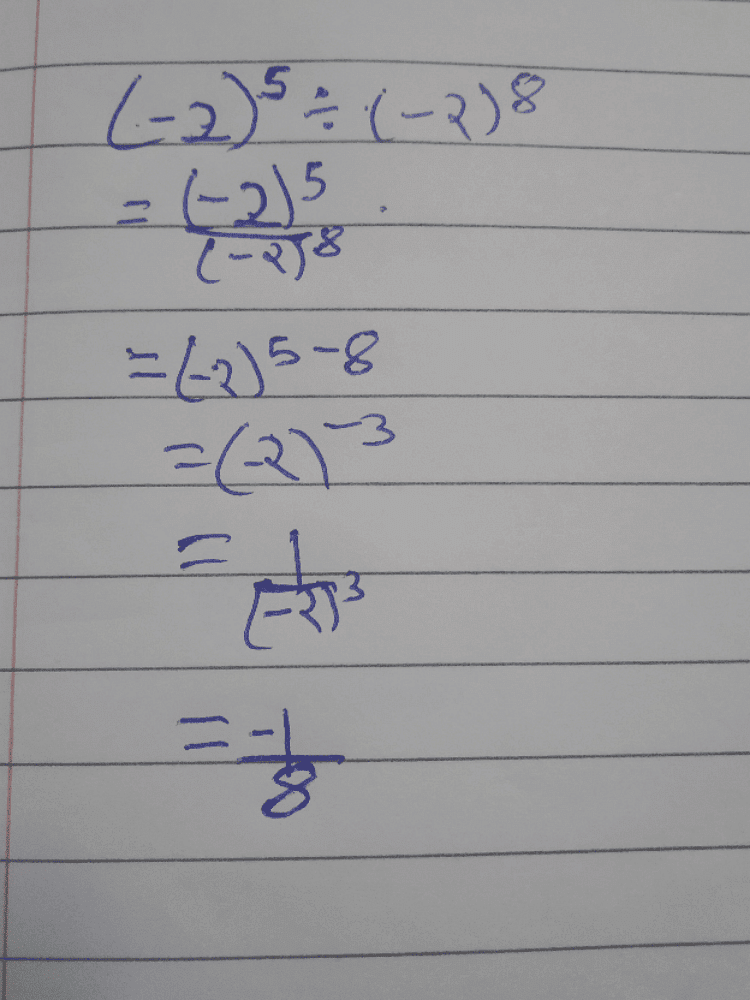 (-2)⁵ ÷ (-2)⁸
= (-2)⁵/(-2)⁸
= (-2)⁵⁻⁸
= (-2)⁻³
= 1/(-2)³
= -1/8